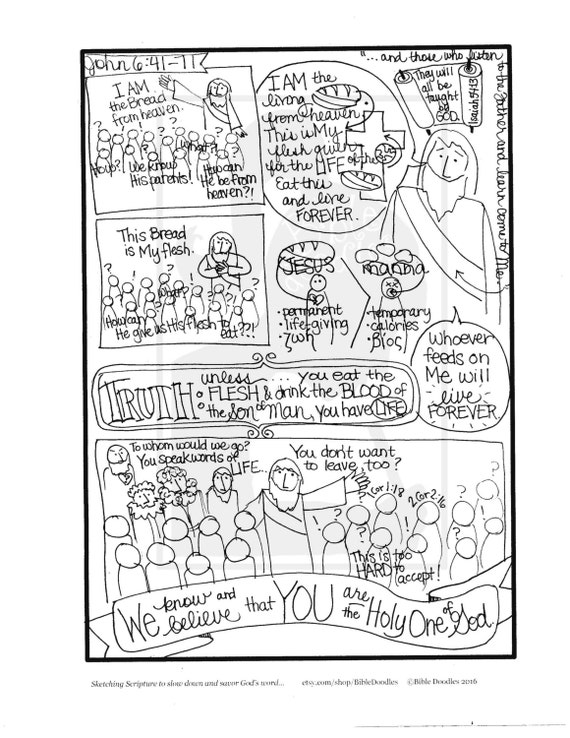 John 6:41-71
"...and those who listen to the Father and learn come to Me."
I AM
the Bread
from heaven.
How?!
We know
His parents!
What?
How can
He be from
heaven?!
I AM the
living
from heaven
This is My
flesh given
for the LIFE of the
Eat this
and live
FOREVER.
They will
all be
taught
by
GOD.
Isaiah 54:13
This Bread
is My flesh.
What?
How can
He give us His flesh to
eat??!
JESUS
• permanent
• life-giving
• ζωή
manna
• temporary
• calories
• βίος
Whoever
feeds on
Me will
live
FOREVER
TRUTH:
unless.... you eat the
FLESH & drink the BLOOD of
the Son of Man, you have LIFE
To whom would we go?
You speak words of
LIFE...
You don't want
to leave, too?
1 Cor 1:18
2 Cor 2:16
This is too
HARD to
accept!
We know and believe that YOU are the Holy One of God.
Sketching Scripture to slow down and savor God's word... etsy.com/shop/BibleDoodles ©Bible Doodles 2016